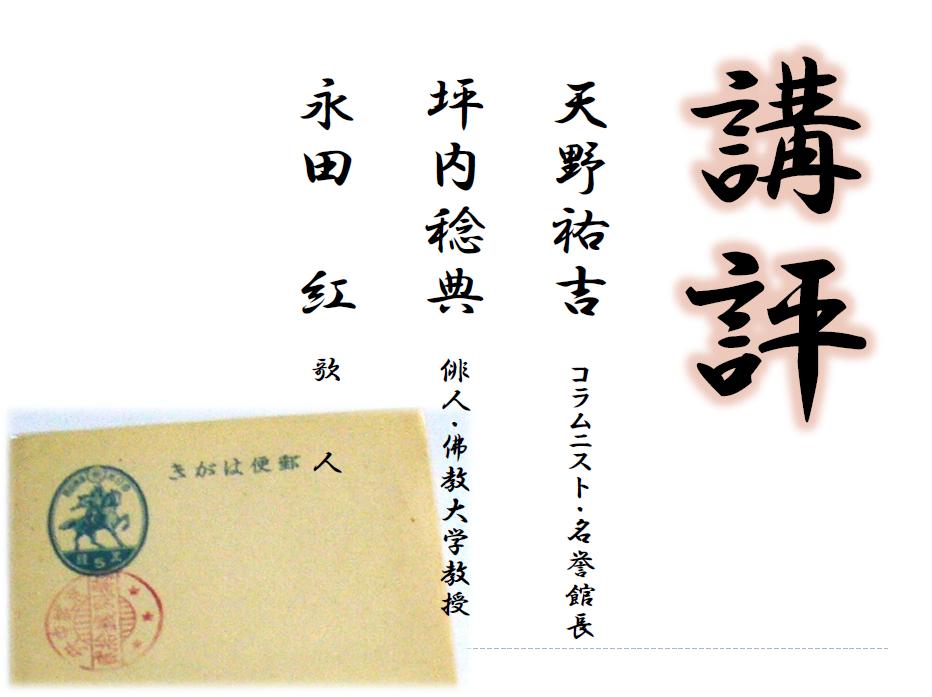 講評
天野祐吉 コラムニスト・名誉館長
坪内稔典 俳人・佛教大学教授
永田 紅 歌人
きがは便郵